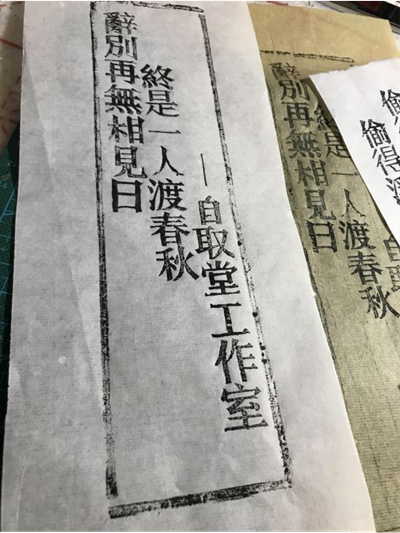 辭別再無相見日
終是一人渡春秋
——自取堂工作室
別再無相見日
終是一人渡春秋
自取
偷得
偷